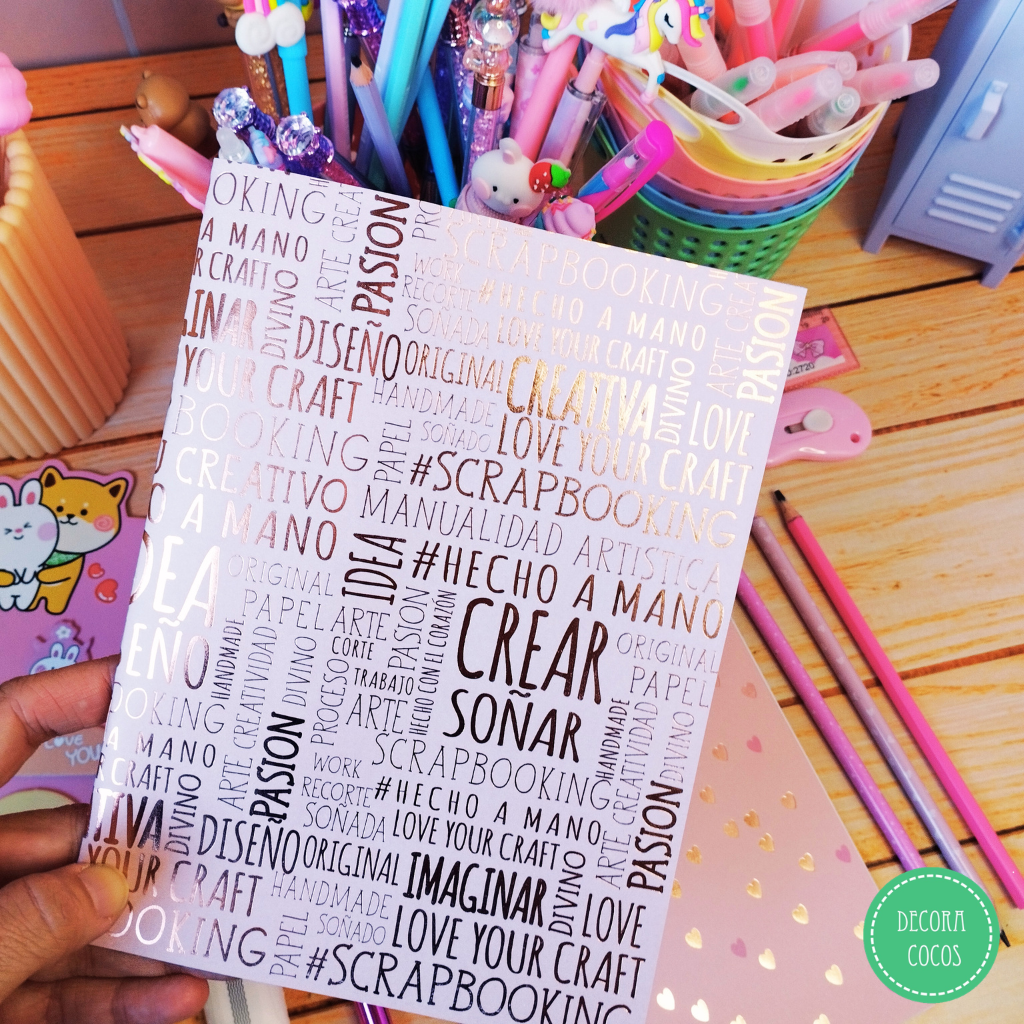 OKING
A MANO
R CRAFT
DIVINO
ARTE CREA
PASION
PRO
SCRAPBOOKING
WORK
RECORTE
#HECHO A MANO
SOÑADA
LOVE YOUR CRAFT
ARTE CREA
PASION
INAR
DISEÑO
ORIGINAL
CREATIVA
DIVINO
LOVE
YOUR CRAFT
HANDMADE
SOÑADO
LOVE YOUR CRAFT
BOOKING
PAPEL
#SCRAPBOOKING
CREATIVO
MANUALIDAD ARTISTICA
O A MANO
IDEA
#HECHO A MANO
DEA
ORIGINAL
PAPEL
ARTE
PASION
HECHO CON EL CORAZON
CREAR
ORIGINAL
PAPEL
SEÑO
HANDMADE
CREATIVIDAD
DIVINO
CORTE
TRABAJO
PROCESO
ARTE
SOÑAR
HANDMADE
CREATIVIDAD
DIVINO
OOKING
SCRAPBOOKING
A MANO
ARTE
PASION
WORK
RECORTE
#HECHO A MANO
ARTE
PASION
R CRAFT
SOÑADA
LOVE YOUR CRAFT
TIVA
DIVINO
DISEÑO
ORIGINAL
IMAGINAR
DIVINO
LOVE
YOUR CRAFT
HANDMADE
SOÑADO
LOVE YOUR CRAFT
OOKING
PAPEL
#SCRAPBOOKING
LOVE
YOU
DECORA
COCOS